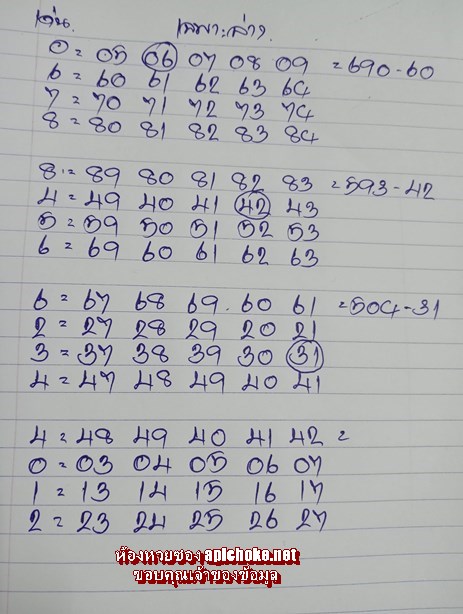 เด่น เฉพาะล่าง
0 = 05 06 07 08 09 = 690-60
6 = 60 61 62 63 64
7 = 70 71 72 73 74
8 = 80 81 82 83 84
8 = 89 80 81 82 83 = 593-42
4 = 49 40 41 42 43
5 = 59 50 51 52 53
6 = 69 60 61 62 63
6 = 67 68 69 60 61 = 504-31
2 = 27 28 29 20 21
3 = 37 38 39 30 31
4 = 47 48 49 40 41
4 = 48 49 40 41 42 =
0 = 03 04 05 06 07
1 = 13 14 15 16 17
2 = 23 24 25 26 27
ห้องหวยซอง apichoke.net
ขอบคุณเจ้าของข้อมูล